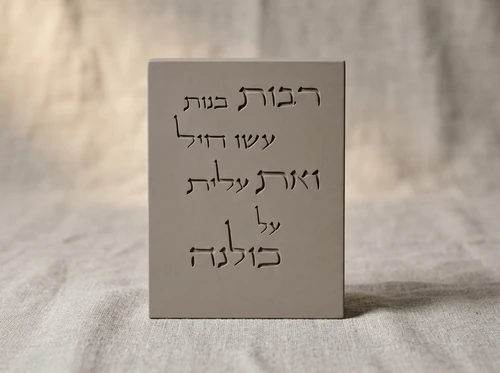 רבות בנות
עשו חיל
ואת עלית
על
כולנה